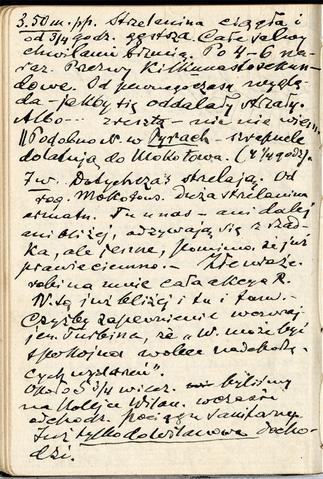 3.50 m. pp. Strzelanina ciągła i
od 3¼ godz. gęstsza. Całe salwy
chwilami brzmią. Po 4-6 na-
raz. Przerwy kilkunastosekun-
dowe. Od pewnego czasu wyglą-
da - jakby się oddalały strzały.
Albo... zresztą - nic nie wiem
"Podobno" N. w Pyrach - szrapnele
dolatują do Mokotowa. (4¼ godz.)
7 w. Dotychczas strzelają. Od
rog. Mokotows. duża strzelanina
armatn. Tu u nas - ani dalej
ani bliżej, odzywają się z rzad-
ka, ale jeszcze, pomimo, że już
prawie ciemno. - Złe wraże-
robi na mnie cała akcya R.
N. są już bliżej i tu i tam. -
Czyżby zapewnienie wczoraj
jen. Turbina, że "W. może być
spokojna wobec nadchodzą-
cych wydarzeń".
Około 5¾ wiecz. byliśmy
na Kolejce Wilan. wczas
odchodz. pociągu sanitarn.
Już tylko do Wilanowa docho-
dzi.